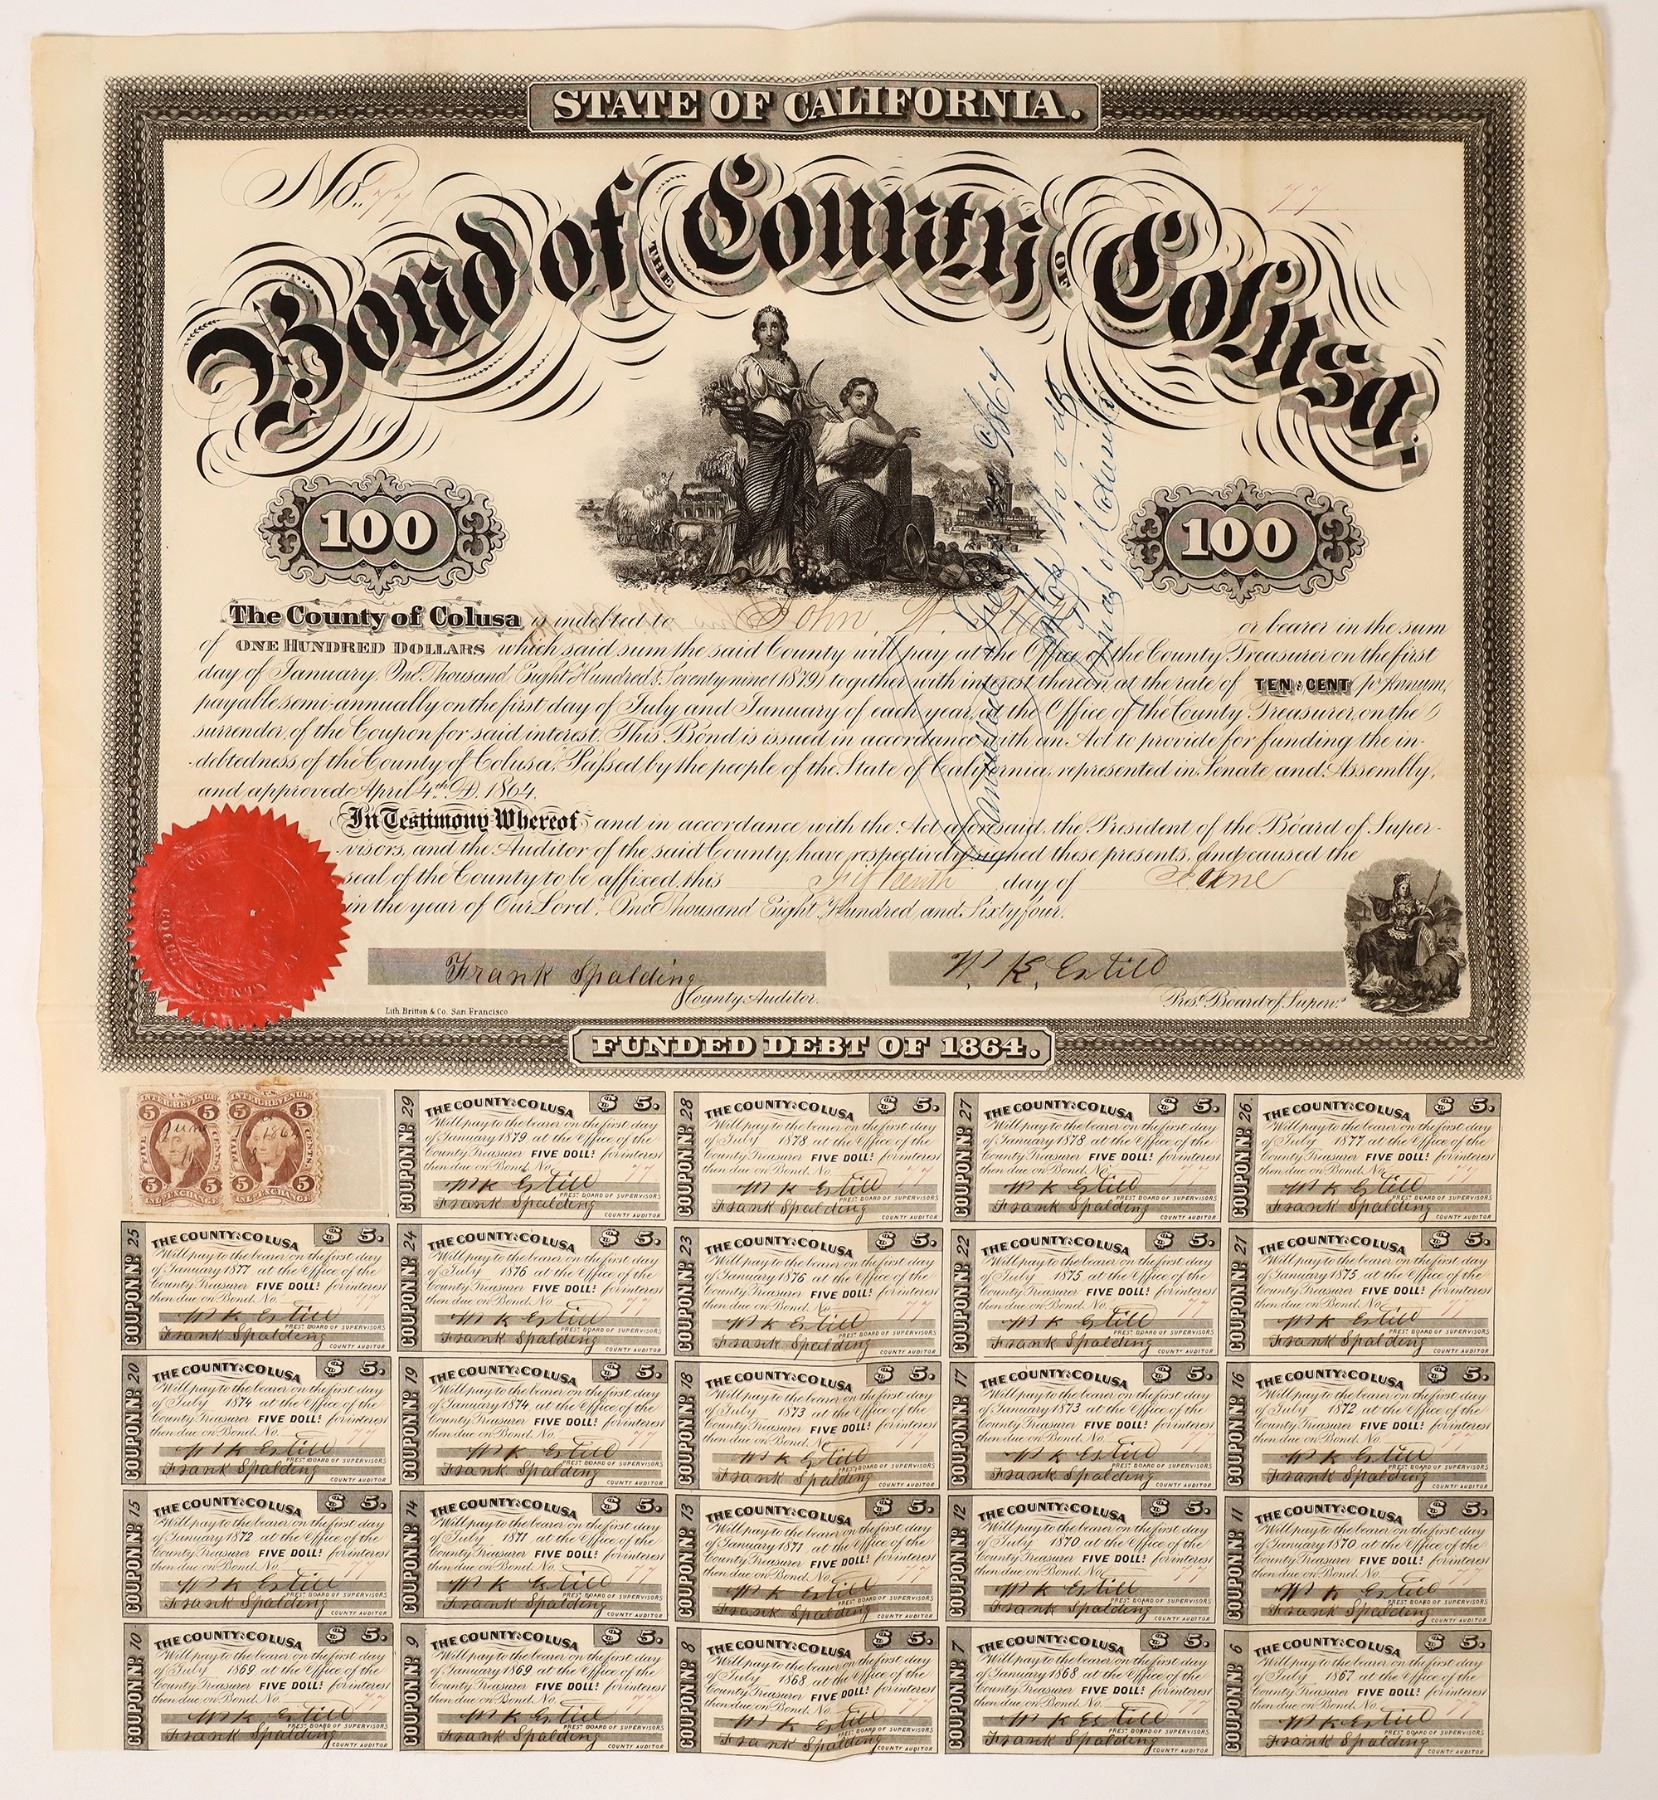 STATE OF CALIFORNIA.
No. 77
77
Bond of THE County OF Colusa.
100
100
The County of Colusa is indebted to John W. or bearer in the sum
of ONE HUNDRED DOLLARS which said sum the said County will pay at the Office of the County Treasurer on the first
day of January, One Thousand Eight Hundred & Seventy nine (1879) together with interest thereon at the rate of TEN PR CENT pr Annum,
payable semi-annually on the first day of July and January of each year, at the Office of the County Treasurer, on the
surrender, of the Coupon for said interest. This Bond is issued in accordance with an Act to provide for funding the in-
debtedness of the County of Colusa, Passed by the people of the State of California, represented in Senate and Assembly,
and approved April 4th A.D. 1864.
In Testimony Whereof and in accordance with the Act aforesaid, the President of the Board of Super-
visors, and the Auditor of the said County, have respectively signed these presents, and caused the
seal of the County to be affixed, this Fifteenth day of June
in the year of Our Lord, One Thousand Eight Hundred and Sixty four.
Frank Spalding
County Auditor.
W. K. Estill
Prest. Board of Superv.s
Lith. Britton & Co. San Francisco
FUNDED DEBT OF 1864.
INTER. REVENUE
5 5
FIVE CENTS
5 5
INL. EXCHANGE
INTER. REVENUE
5 5
FIVE CENTS
5 5
INL. EXCHANGE
June
1864
COUPON No. 29
THE COUNTY OF COLUSA $ 5.
Will pay to the bearer on the first day
of January 1879 at the Office of the
County Treasurer FIVE DOLLs. for interest
then due on Bond. No. 77
W K Estill
PREST BOARD OF SUPERVISORS
Frank Spalding
COUNTY AUDITOR
COUPON No. 28
THE COUNTY OF COLUSA $ 5.
Will pay to the bearer on the first day
of July 1878 at the Office of the
County Treasurer FIVE DOLLs. for interest
then due on Bond. No. 77
W K Estill
PREST BOARD OF SUPERVISORS
Frank Spalding
COUNTY AUDITOR
COUPON No. 27
THE COUNTY OF COLUSA $ 5.
Will pay to the bearer on the first day
of January 1878 at the Office of the
County Treasurer FIVE DOLLs. for interest
then due on Bond. No. 77
W K Estill
PREST BOARD OF SUPERVISORS
Frank Spalding
COUNTY AUDITOR
COUPON No. 26
THE COUNTY OF COLUSA $ 5.
Will pay to the bearer on the first day
of July 1877 at the Office of the
County Treasurer FIVE DOLLs. for interest
then due on Bond. No. 77
W K Estill
PREST BOARD OF SUPERVISORS
Frank Spalding
COUNTY AUDITOR
COUPON No. 25
THE COUNTY OF COLUSA $ 5.
Will pay to the bearer on the first day
of January 1877 at the Office of the
County Treasurer FIVE DOLLs. for interest
then due on Bond. No. 77
W K Estill
PREST BOARD OF SUPERVISORS
Frank Spalding
COUNTY AUDITOR
COUPON No. 24
THE COUNTY OF COLUSA $ 5.
Will pay to the bearer on the first day
of July 1876 at the Office of the
County Treasurer FIVE DOLLs. for interest
then due on Bond. No. 77
W K Estill
PREST BOARD OF SUPERVISORS
Frank Spalding
COUNTY AUDITOR
COUPON No. 23
THE COUNTY OF COLUSA $ 5.
Will pay to the bearer on the first day
of January 1876 at the Office of the
County Treasurer FIVE DOLLs. for interest
then due on Bond. No. 77
W K Estill
PREST BOARD OF SUPERVISORS
Frank Spalding
COUNTY AUDITOR
COUPON No. 22
THE COUNTY OF COLUSA $ 5.
Will pay to the bearer on the first day
of July 1875 at the Office of the
County Treasurer FIVE DOLLs. for interest
then due on Bond. No. 77
W K Estill
PREST BOARD OF SUPERVISORS
Frank Spalding
COUNTY AUDITOR
COUPON No. 21
THE COUNTY OF COLUSA $ 5.
Will pay to the bearer on the first day
of January 1875 at the Office of the
County Treasurer FIVE DOLLs. for interest
then due on Bond. No. 77
W K Estill
PREST BOARD OF SUPERVISORS
Frank Spalding
COUNTY AUDITOR
COUPON No. 20
THE COUNTY OF COLUSA $ 5.
Will pay to the bearer on the first day
of July 1874 at the Office of the
County Treasurer FIVE DOLLs. for interest
then due on Bond. No. 77
W K Estill
PREST BOARD OF SUPERVISORS
Frank Spalding
COUNTY AUDITOR
COUPON No. 19
THE COUNTY OF COLUSA $ 5.
Will pay to the bearer on the first day
of January 1874 at the Office of the
County Treasurer FIVE DOLLs. for interest
then due on Bond. No. 77
W K Estill
PREST BOARD OF SUPERVISORS
Frank Spalding
COUNTY AUDITOR
COUPON No. 18
THE COUNTY OF COLUSA $ 5.
Will pay to the bearer on the first day
of July 1873 at the Office of the
County Treasurer FIVE DOLLs. for interest
then due on Bond. No. 77
W K Estill
PREST BOARD OF SUPERVISORS
Frank Spalding
COUNTY AUDITOR
COUPON No. 17
THE COUNTY OF COLUSA $ 5.
Will pay to the bearer on the first day
of January 1873 at the Office of the
County Treasurer FIVE DOLLs. for interest
then due on Bond. No. 77
W K Estill
PREST BOARD OF SUPERVISORS
Frank Spalding
COUNTY AUDITOR
COUPON No. 16
THE COUNTY OF COLUSA $ 5.
Will pay to the bearer on the first day
of July 1872 at the Office of the
County Treasurer FIVE DOLLs. for interest
then due on Bond. No. 77
W K Estill
PREST BOARD OF SUPERVISORS
Frank Spalding
COUNTY AUDITOR
COUPON No. 15
THE COUNTY OF COLUSA $ 5.
Will pay to the bearer on the first day
of January 1872 at the Office of the
County Treasurer FIVE DOLLs. for interest
then due on Bond. No. 77
W K Estill
PREST BOARD OF SUPERVISORS
Frank Spalding
COUNTY AUDITOR
COUPON No. 14
THE COUNTY OF COLUSA $ 5.
Will pay to the bearer on the first day
of July 1871 at the Office of the
County Treasurer FIVE DOLLs. for interest
then due on Bond. No. 77
W K Estill
PREST BOARD OF SUPERVISORS
Frank Spalding
COUNTY AUDITOR
COUPON No. 13
THE COUNTY OF COLUSA $ 5.
Will pay to the bearer on the first day
of January 1871 at the Office of the
County Treasurer FIVE DOLLs. for interest
then due on Bond. No. 77
W K Estill
PREST BOARD OF SUPERVISORS
Frank Spalding
COUNTY AUDITOR
COUPON No. 12
THE COUNTY OF COLUSA $ 5.
Will pay to the bearer on the first day
of July 1870 at the Office of the
County Treasurer FIVE DOLLs. for interest
then due on Bond. No. 77
W K Estill
PREST BOARD OF SUPERVISORS
Frank Spalding
COUNTY AUDITOR
COUPON No. 11
THE COUNTY OF COLUSA $ 5.
Will pay to the bearer on the first day
of January 1870 at the Office of the
County Treasurer FIVE DOLLs. for interest
then due on Bond. No. 77
W K Estill
PREST BOARD OF SUPERVISORS
Frank Spalding
COUNTY AUDITOR
COUPON No. 10
THE COUNTY OF COLUSA $ 5.
Will pay to the bearer on the first day
of July 1869 at the Office of the
County Treasurer FIVE DOLLs. for interest
then due on Bond. No. 77
W K Estill
PREST BOARD OF SUPERVISORS
Frank Spalding
COUNTY AUDITOR
COUPON No. 9
THE COUNTY OF COLUSA $ 5.
Will pay to the bearer on the first day
of January 1869 at the Office of the
County Treasurer FIVE DOLLs. for interest
then due on Bond. No. 77
W K Estill
PREST BOARD OF SUPERVISORS
Frank Spalding
COUNTY AUDITOR
COUPON No. 8
THE COUNTY OF COLUSA $ 5.
Will pay to the bearer on the first day
of July 1868 at the Office of the
County Treasurer FIVE DOLLs. for interest
then due on Bond. No. 77
W K Estill
PREST BOARD OF SUPERVISORS
Frank Spalding
COUNTY AUDITOR
COUPON No. 7
THE COUNTY OF COLUSA $ 5.
Will pay to the bearer on the first day
of January 1868 at the Office of the
County Treasurer FIVE DOLLs. for interest
then due on Bond. No. 77
W K Estill
PREST BOARD OF SUPERVISORS
Frank Spalding
COUNTY AUDITOR
COUPON No. 6
THE COUNTY OF COLUSA $ 5.
Will pay to the bearer on the first day
of July 1867 at the Office of the
County Treasurer FIVE DOLLs. for interest
then due on Bond. No. 77
W K Estill
PREST BOARD OF SUPERVISORS
Frank Spalding
COUNTY AUDITOR